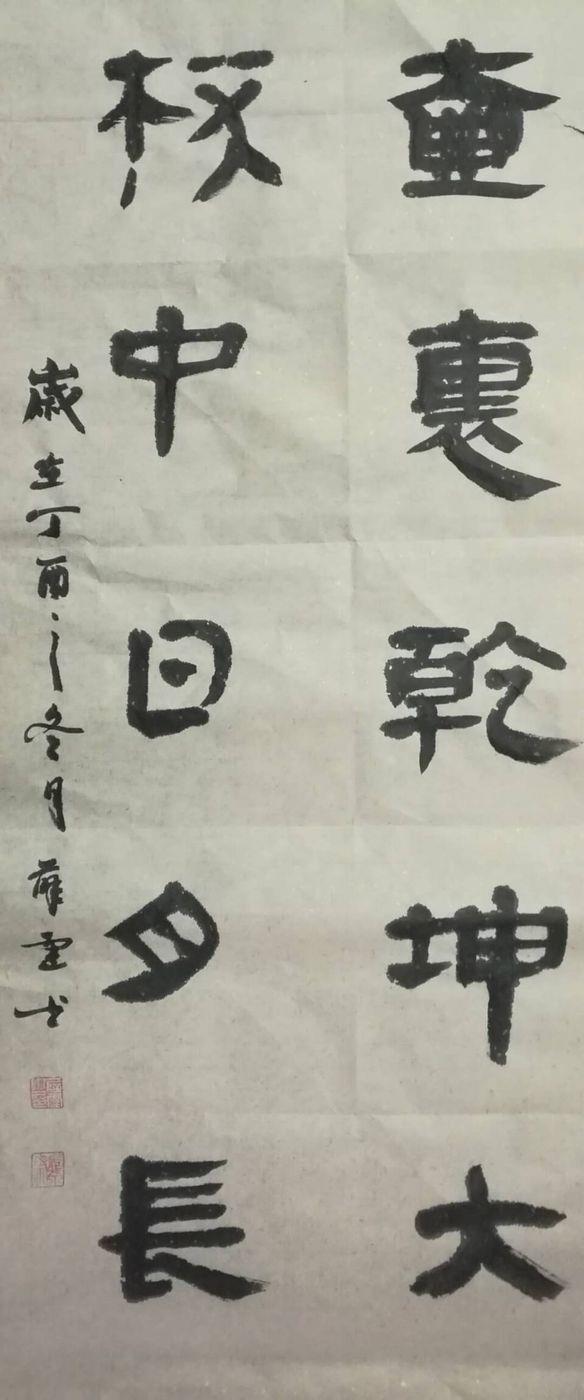 壺裏乾坤大
杯中日月長
歲在丁酉之冬月 薛